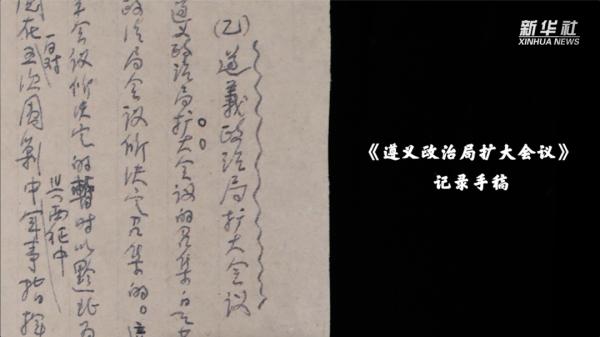 新华社
XINHUA NEWS
《遵义政治局扩大会议》
记录手稿
(乙)遵義政治局扩大会议
遵义政治局扩大会议的召集
政治局会议所决定召集的。這
会议所决定的暂时以黔北为
与西征中
在五次围剿中军事指挥